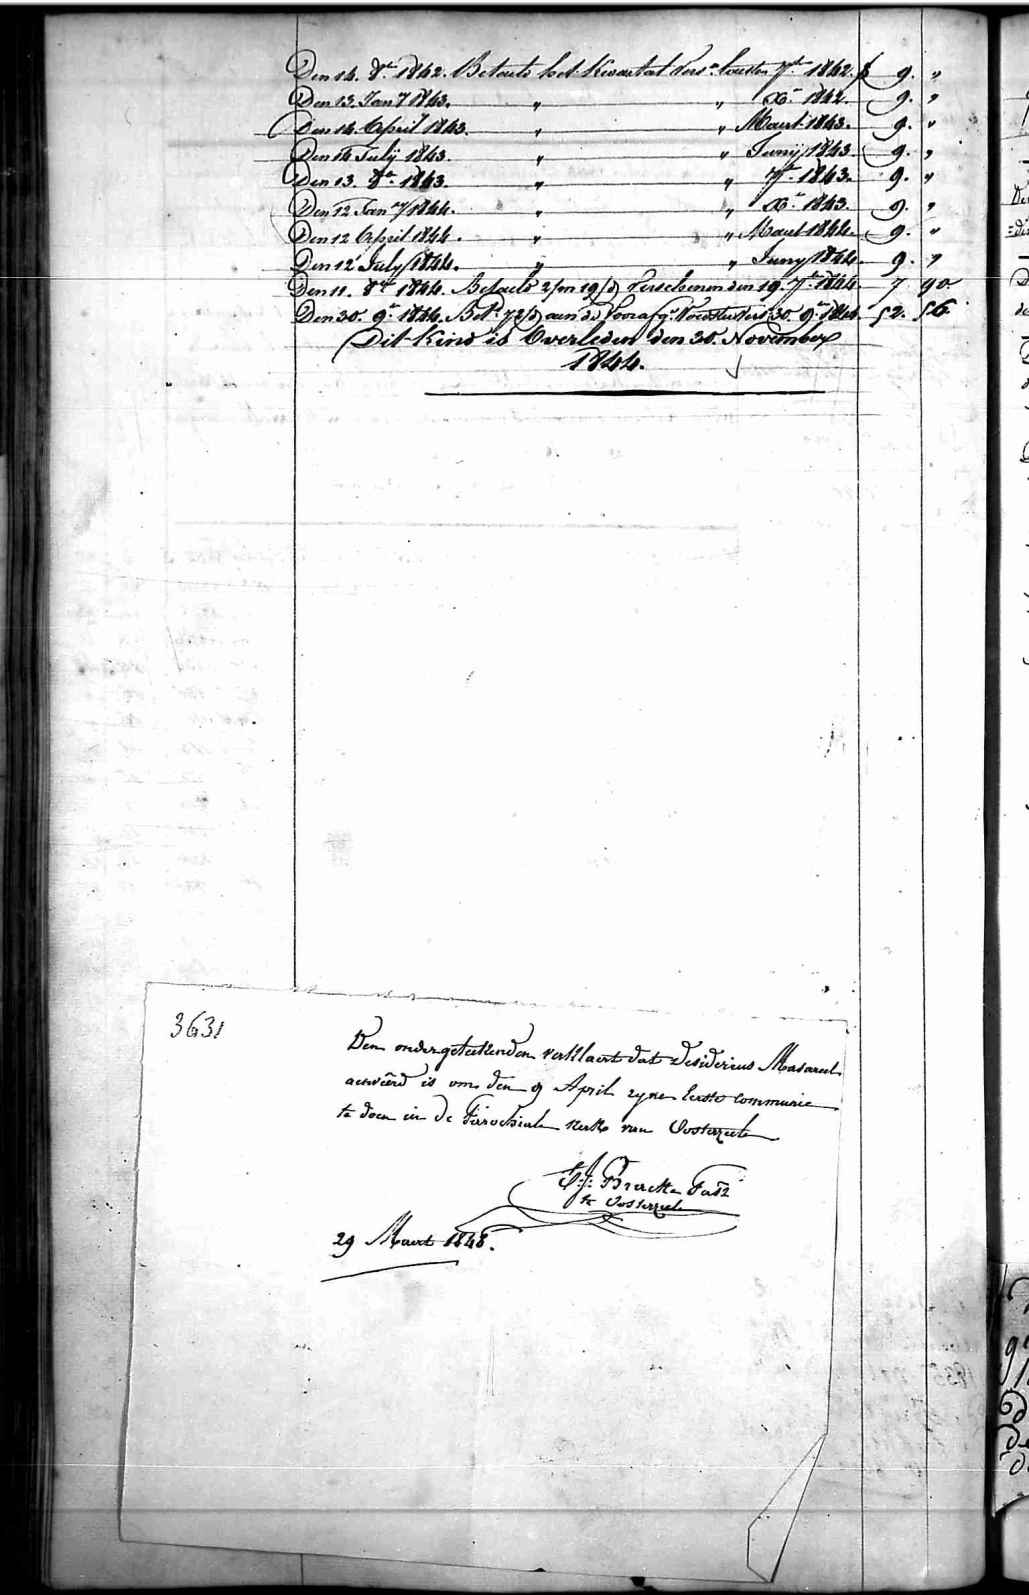 Den 14. 8.e 1842. Betaelt het Kwartal vers. lousten 7.e 1842. f 9. "
Den 13. Jan.y 1843. " " X.e 1842. 9. "
Den 14. April 1843. " " Maert 1843. 9. "
Den 14 July 1843. " " Juny 1843. 9. "
Den 13. 8.e 1843. " " 7.e 1843. 9. "
Den 12 Jan.ry 1844. " " X.e 1843. 9. "
Den 12 April 1844. " " Maert 1844. 9. "
Den 12 July 1844. " " Juny 1844. 9. "
Den 11. 8.e 1844. Betaelt 2/m 19/d Verschenen den 19. 7.e 1844 7 90
Den 30. 9.e 1844. Bet.t 72/d aen de voorsters vers 30. 9.e 1844. 52. 56
Dit Kind is Overleden den 30. November
1844.
3631
Den ondergeteekenden verklaert dat Desiderius Masareel
is om den 9 April zyne Eerste communie
te doen in de Parochiale kerke van Oosterzeele
te Oosterzeele
29 Maert 1848.